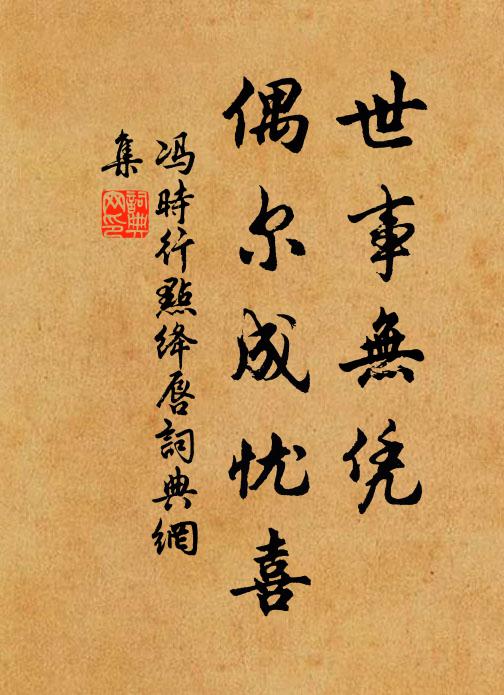 世事無凭
偶尔成忧喜
冯時行點绛唇詞典網
集
詞典
网印